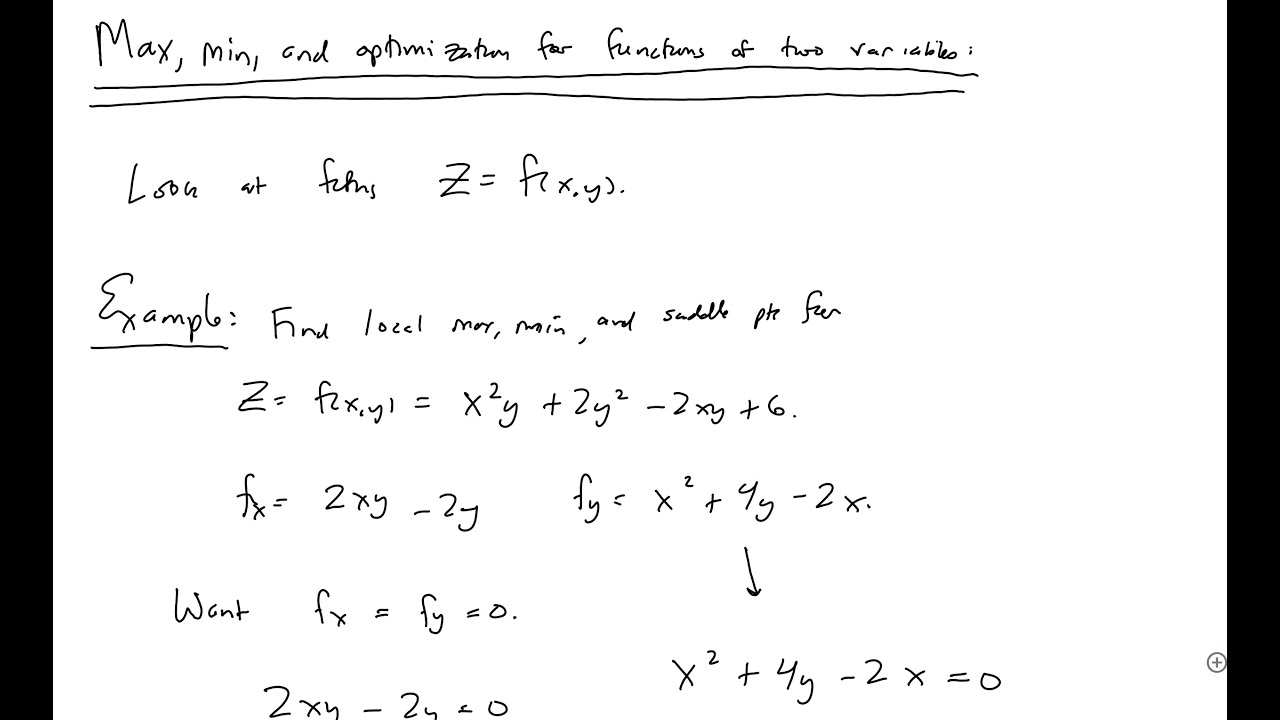 Max, min, and optimization for functions of two variables:
Look at fctns Z = f(x,y).
Example: Find local max, min, and saddle pts for
Z = f(x,y) = x²y + 2y² - 2xy + 6.
fx = 2xy - 2y fy = x² + 4y - 2x.
↓
Want fx = fy = 0.
x² + 4y - 2x = 0
2xy - 2y = 0